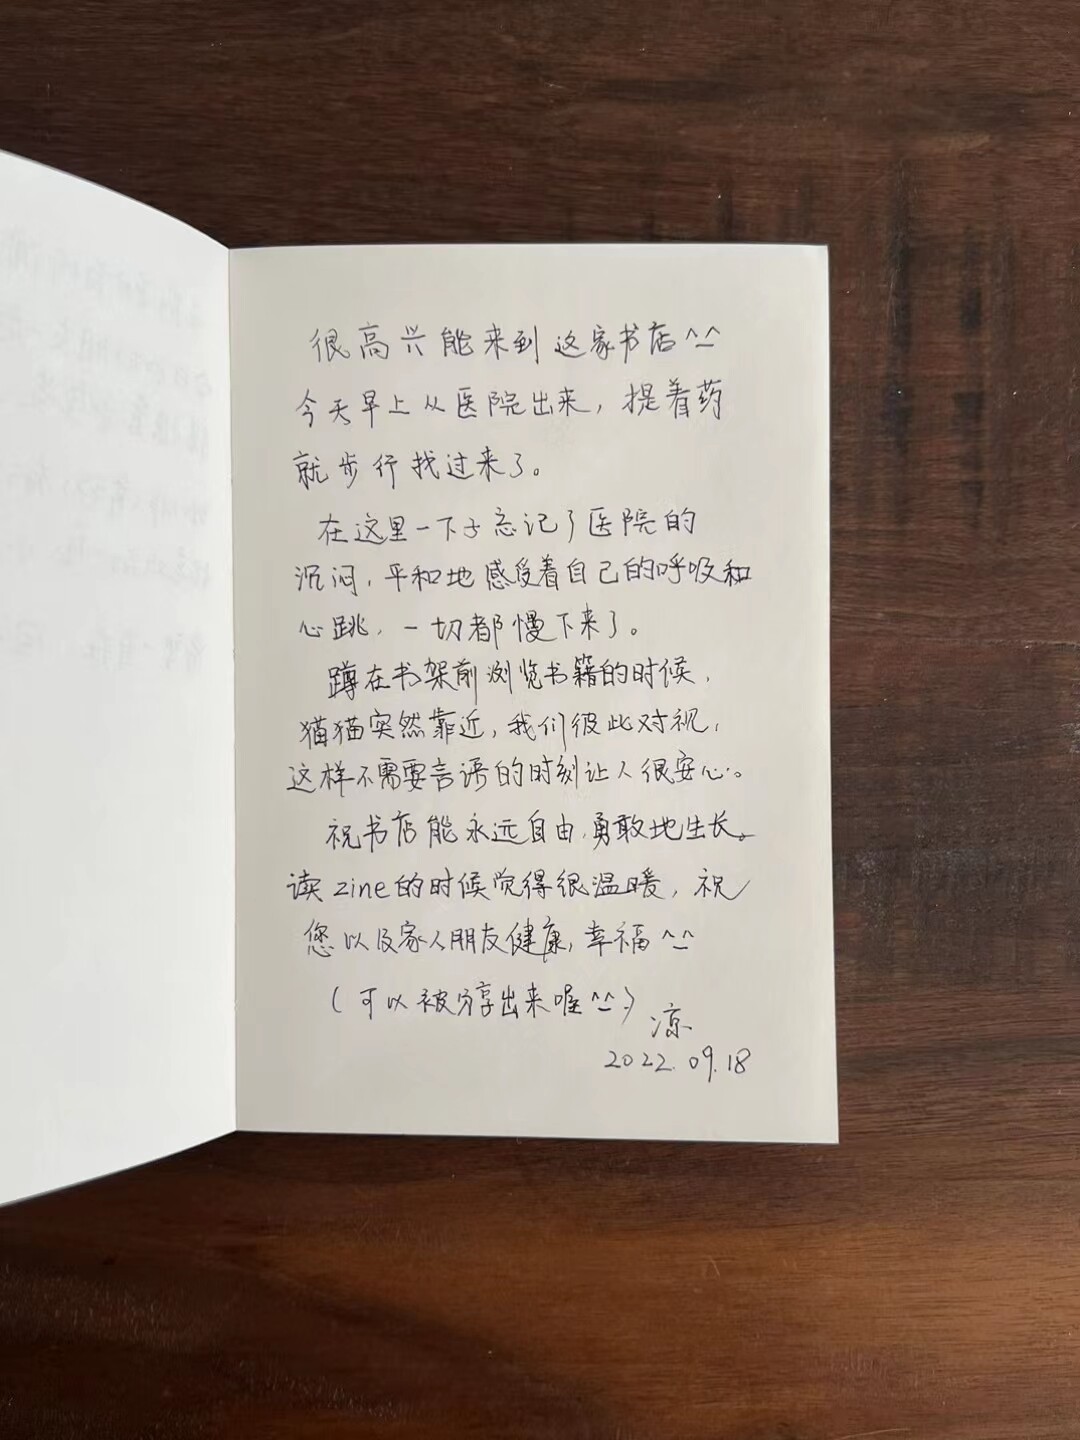 很高兴能来到这家书店^_^
今天早上从医院出来，提着药
就步行找过来了。
在这里一下子忘记了医院的
沉闷，平和地感受着自己的呼吸和
心跳，一切都慢下来了。
蹲在书架前浏览书籍的时候，
猫猫突然靠近，我们彼此对视，
这样不需要言语的时刻让人很安心。
祝书店能永远自由，勇敢地生长。
读zine的时候觉得很温暖，祝
您以及家人朋友健康，幸福^_^
（可以被分享出来喔^_^）
凉
2022.09.18